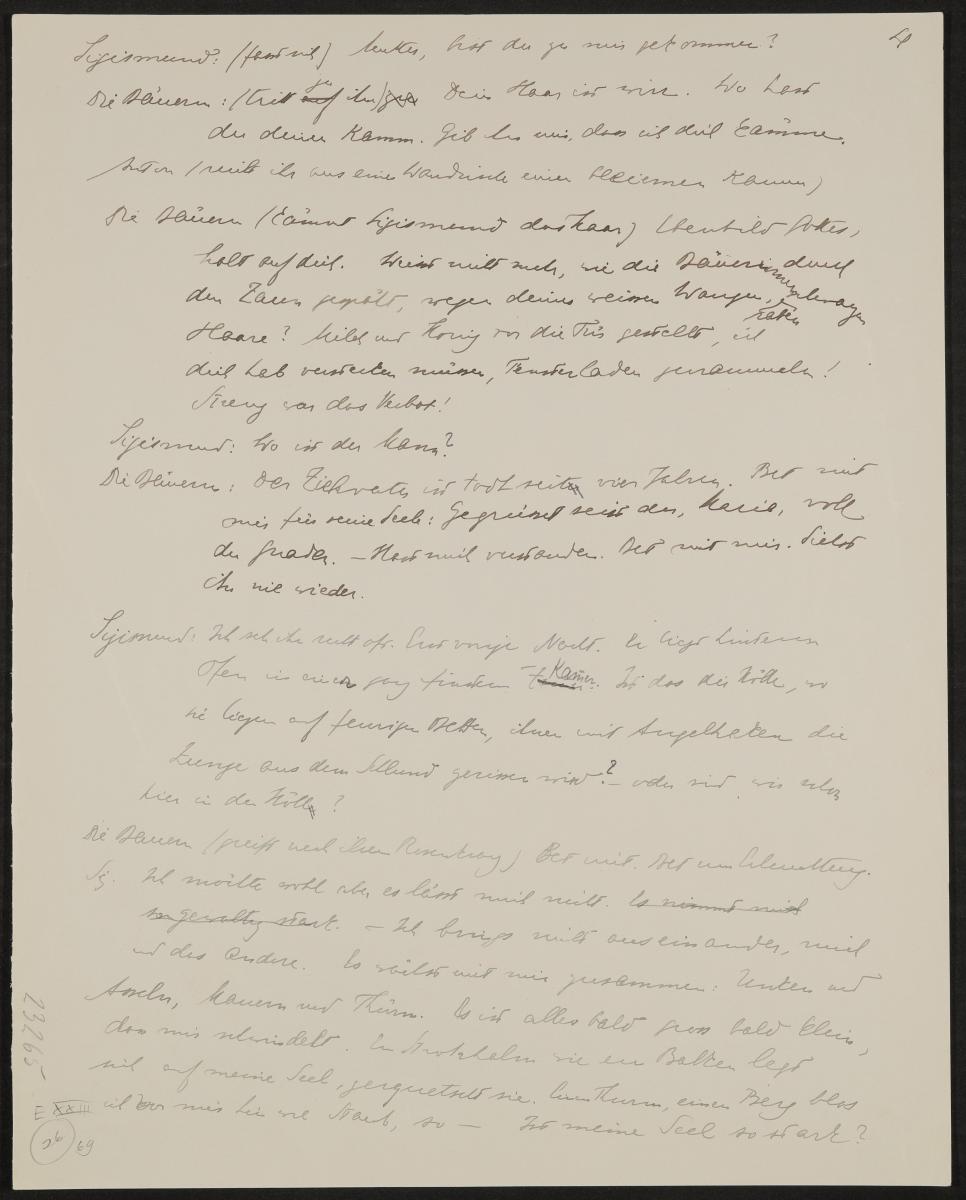 4
Sigismund: (fasst sich) Mutter, bist du zu mir gekommen?
Die Bäuerin: (tritt zu ihm) Dein Haar ist wirr. Wo hast
du deinen Kamm. Gib her mir, dass ich dich kämme.
Anton (reicht ihr aus einer Wandnische einen beinernen Kamm)
Die Bäuerin (kämmt Sigismund das Haar) Ebenbild Gottes,
halt auf dich. Weisst nicht mehr, wie die Bäuerinnen durch
den Zaun gespäht, wegen deiner weissen Wangen, rabenschwarzen
Haare? Milch und Honig vor die Tür gestellt, ich
dich hab verstecken müssen, Fensterladen zurammeln!
Streng war das Verbot!
Sigismund: Wo ist der Mann?
Die Bäuerin: Der Ziehvater ist todt seit vier Jahren. Bet mit
mir für seine Seele: Gegrüsset seist du, Maria, voll
der Gnaden. – Hast mich verstanden. Bet mit mir. Siehst
ihn nie wieder.
Sigismund: Ich seh ihn recht oft. Erst vorige Nacht. Er liegt hinterm
Ofen in einer ganz finstern Kamer. Ist das die Hölle, wo
sie liegen auf feurigen Betten, ihnen mit Angelhaken die
Zunge aus dem Schlund gerissen wird? – oder sind wir schon
hier in der Hölle?
Die Bäuerin (greift nach ihrem Rosenkranz) Bet mit. Bet um Erleuchtung.
Sig. Ich möchte wohl aber es lässt mich nicht. Es nimmt mich
zu gewaltig stark. – Ich brings nicht auseinander, mich
und das andere. Es wächst mit mir zusammen: Unken und
Asseln, Mauern und Thürm. Es ist alles bald gross bald klein,
dass mir schwindelt. Ein Strohhalm wie ein Balken legt
sich auf meine Seel, zerquetscht sie. Einen Thurm, einen Berg blas
ich vor mir hin wie Staub, so – Ist meine Seel so stark?
23265
E XXIII
26
69